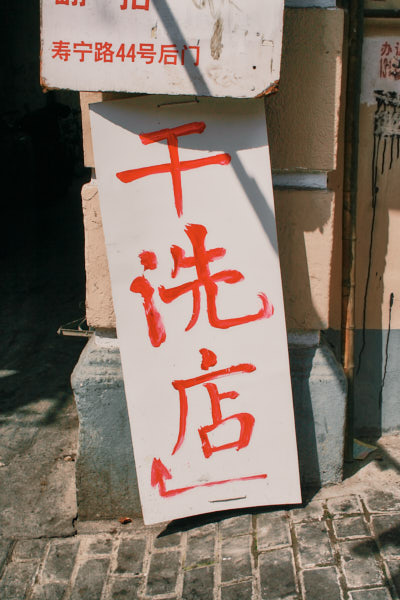 寿宁路44号后门
干
洗
店